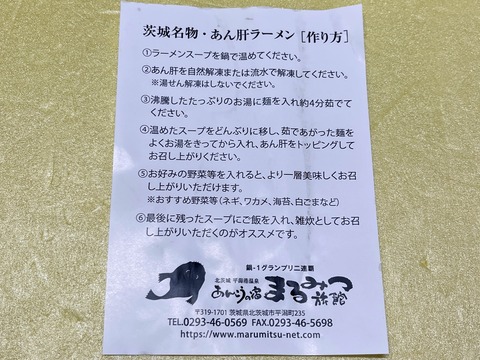 茨城名物・あん肝ラーメン［作り方］
①ラーメンスープを鍋で温めてください。
②あん肝を自然解凍または流水で解凍してください。
※湯せん解凍はしないでください。
③沸騰したたっぷりのお湯に麺を入れ約4分茹でて
ください。
④温めたスープをどんぶりに移し、茹であがった麺を
よくお湯をきってから入れ、あん肝をトッピングして
お召し上がりください。
⑤お好みの野菜等を入れると、より一層美味しくお召
し上がりいただけます。
※おすすめ野菜等（ネギ、ワカメ、海苔、白ごまなど）
⑥最後に残ったスープにご飯を入れ、雑炊としてお召
し上がりいただくのがオススメです。
鍋-1グランプリ二連覇
北茨城 平潟港温泉
あんこうの宿 まるみつ旅館
〒319-1701 茨城県北茨城市平潟町235
TEL.0293-46-0569 FAX.0293-46-5698
https://www.marumitsu-net.com